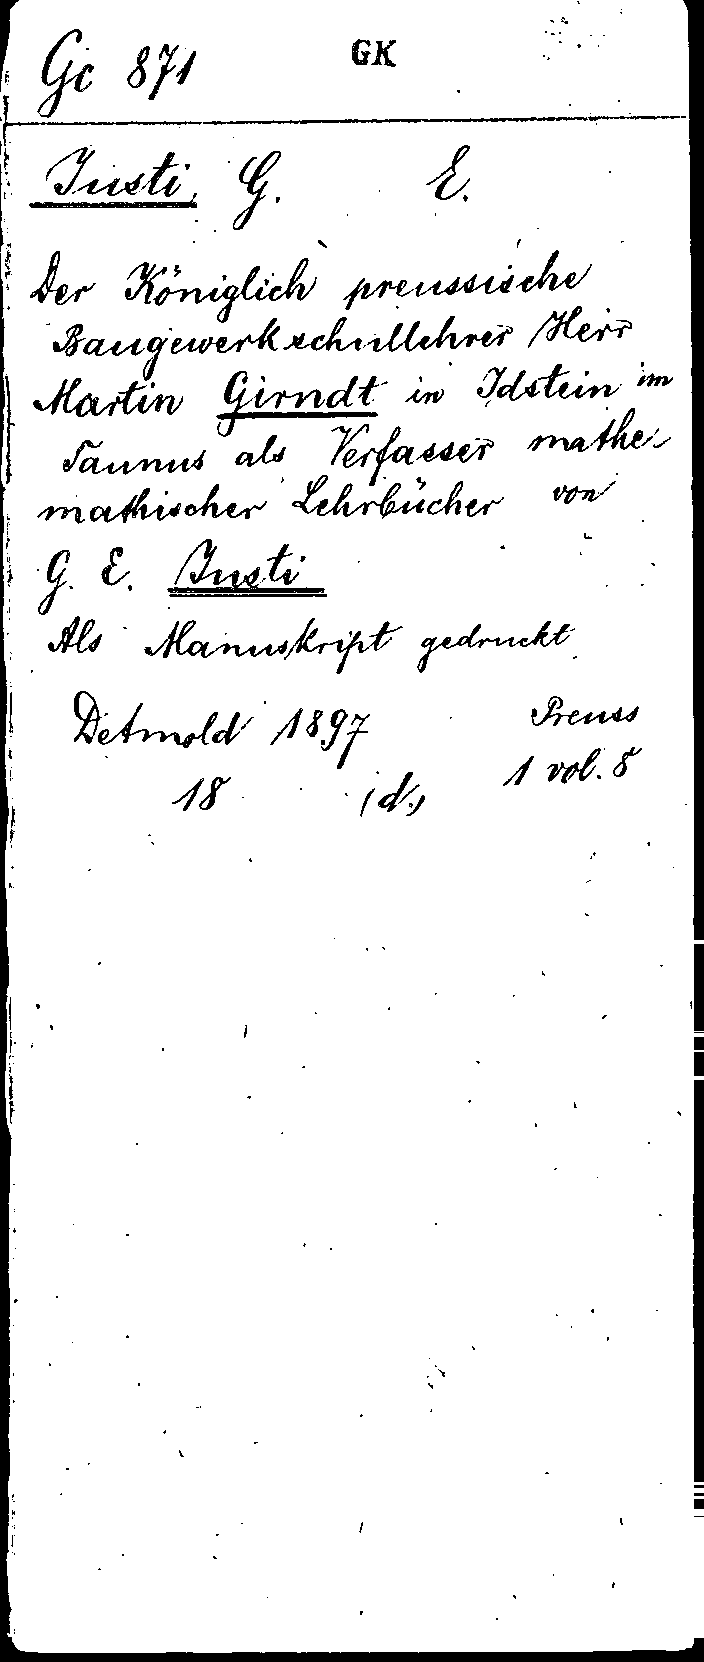 Gc 871 GK
Justi, G. E.
Der Königlich preussische
Baugewerkschullehrer Herr
Martin Girndt in Idstein im
Taunus als Verfasser mathe-
mathischer Lehrbücher von
G. E. Justi
Als Manuskript gedruckt
Detmold 1897 Preuss
18 (d.) 1 vol. 8